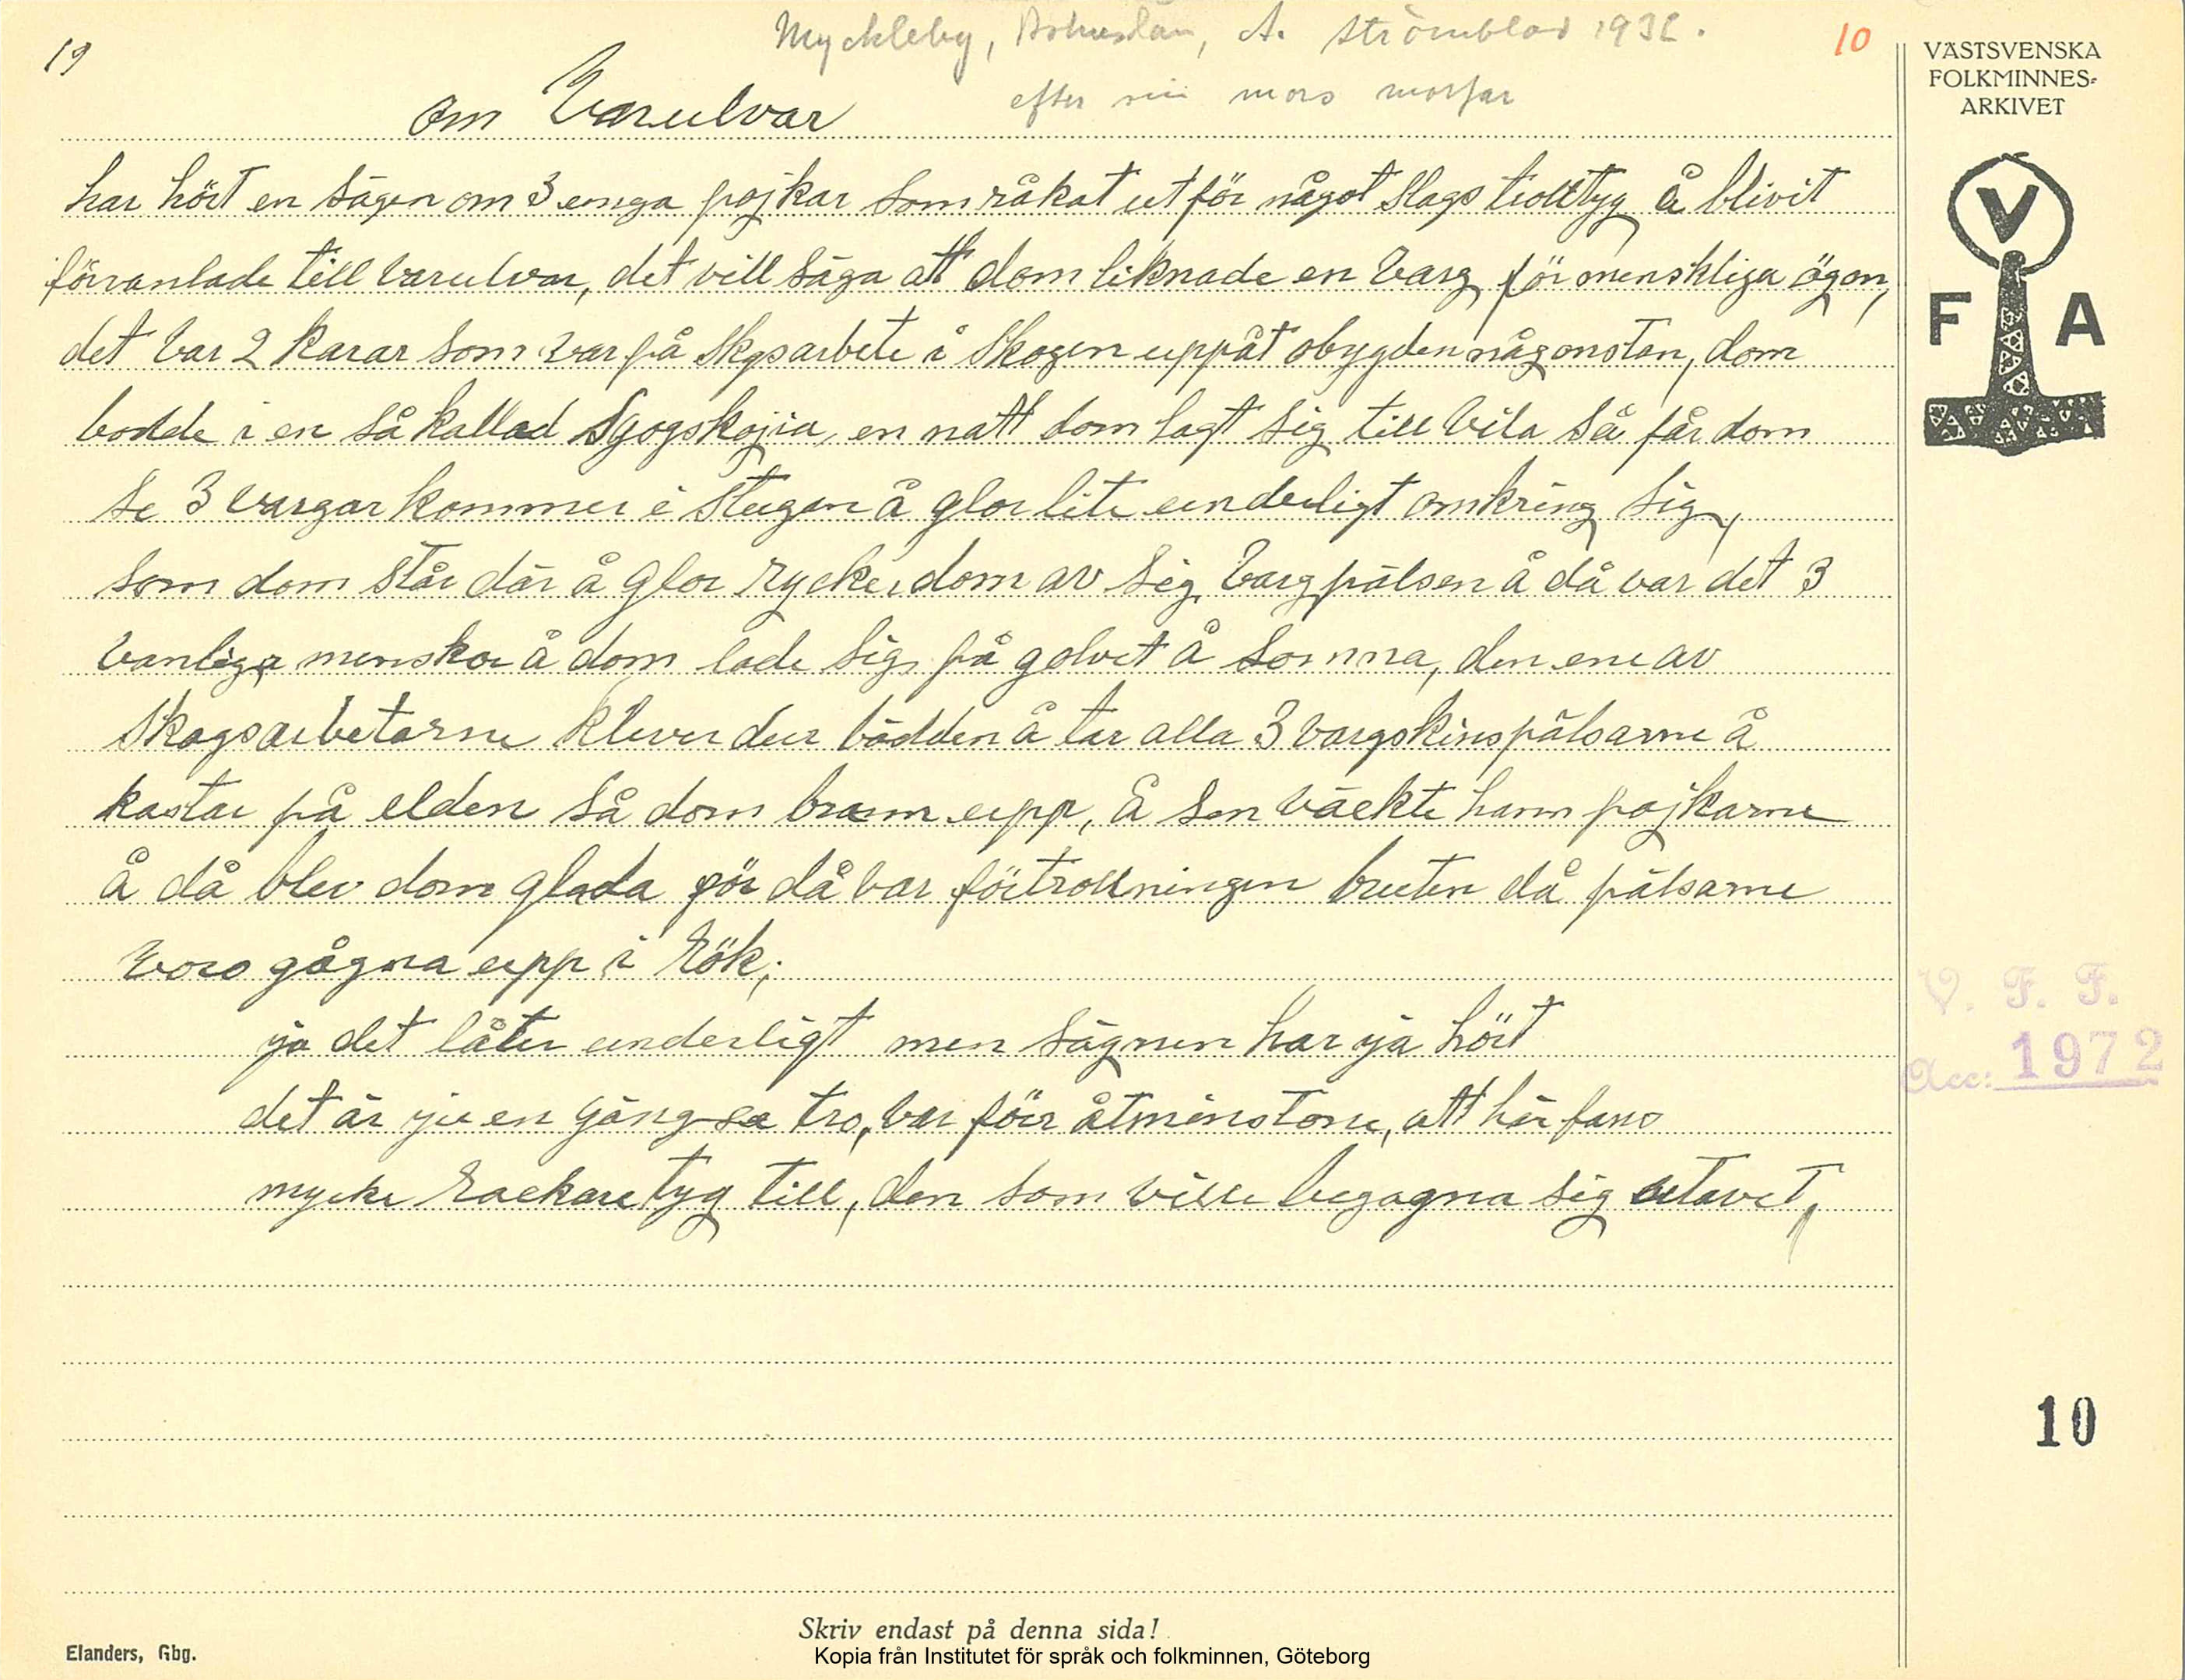 19
Myckleby, Bohuslän, A. Strömblad 1932.
10
efter sin mors morfar
om Varulvar
har hört en sägen om 3 unga pojkar som råkat ut för något slags trolltyg å blivit
förvanlade till varulvar, det vill säga att dom liknade en varg för menskliga ögon,
det var 2 karar som var på skgsarbete i skogen uppåt obygden någonstan, dom
bodde i en så kallad Sgogskojia, en natt dom lagt sig till vila så får dom
se 3 vargar kommer i stugan å glor lite underligt omkring sig,
som dom står där å glor rycker dom av sig vargpälsen å då var det 3
vanliga menskor å dom lade sig på golvet å somna, den ene av
skogsarbetarne klever dur bädden å tar alla 3 vargskinspälsarne å
kastar på elden så dom brann upp, å sen väckte hann pojkarne
å då blev dom glada för då var förtrollningen bruten då pälsarne
voro gågna upp i rök;
ja det låter underligt men sägnen har ja hört
det är ju en gängse tro, var förr åtminstone, att här fans
mycke rackare tyg till, den som ville begagna sig utavet,
VÄSTSVENSKA
FOLKMINNES-
ARKIVET
V
F A
V. F. F.
Acc: 1972
10
Skriv endast på denna sida!
Elanders, Gbg.
Kopia från Institutet för språk och folkminnen, Göteborg